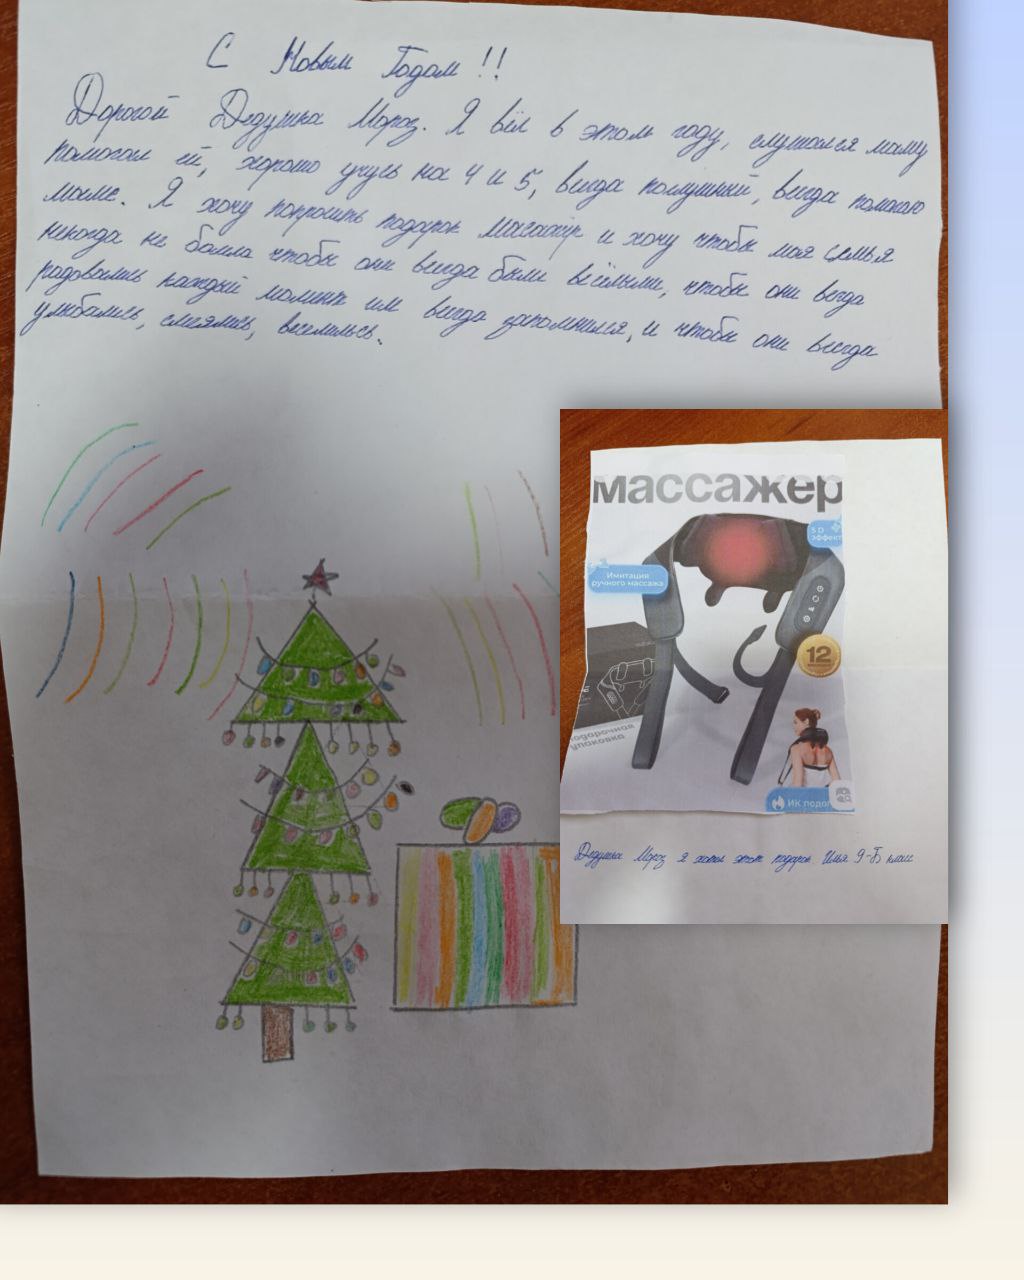 С Новым Годом!!
Дорогой Дедушка Мороз. Я вёл в этом году, слушался маму
помогал ей, хорошо учусь на 4 и 5, всегда послушный, всегда помогаю
маме. Я хочу попросить подарок масажёр и хочу чтобы моя семья
никогда не болела чтобы они всегда были весёлыми, чтобы они всегда
радовались каждый момент им всегда запомнился, и чтобы они всегда
улыбались, смеялись, веселились.
массажер
5D
эффект
Имитация
ручного массажа
12
подарочная
упаковка
ИК подог
Дедушка Мороз я хотел этот подарок Илья 9-Б класс